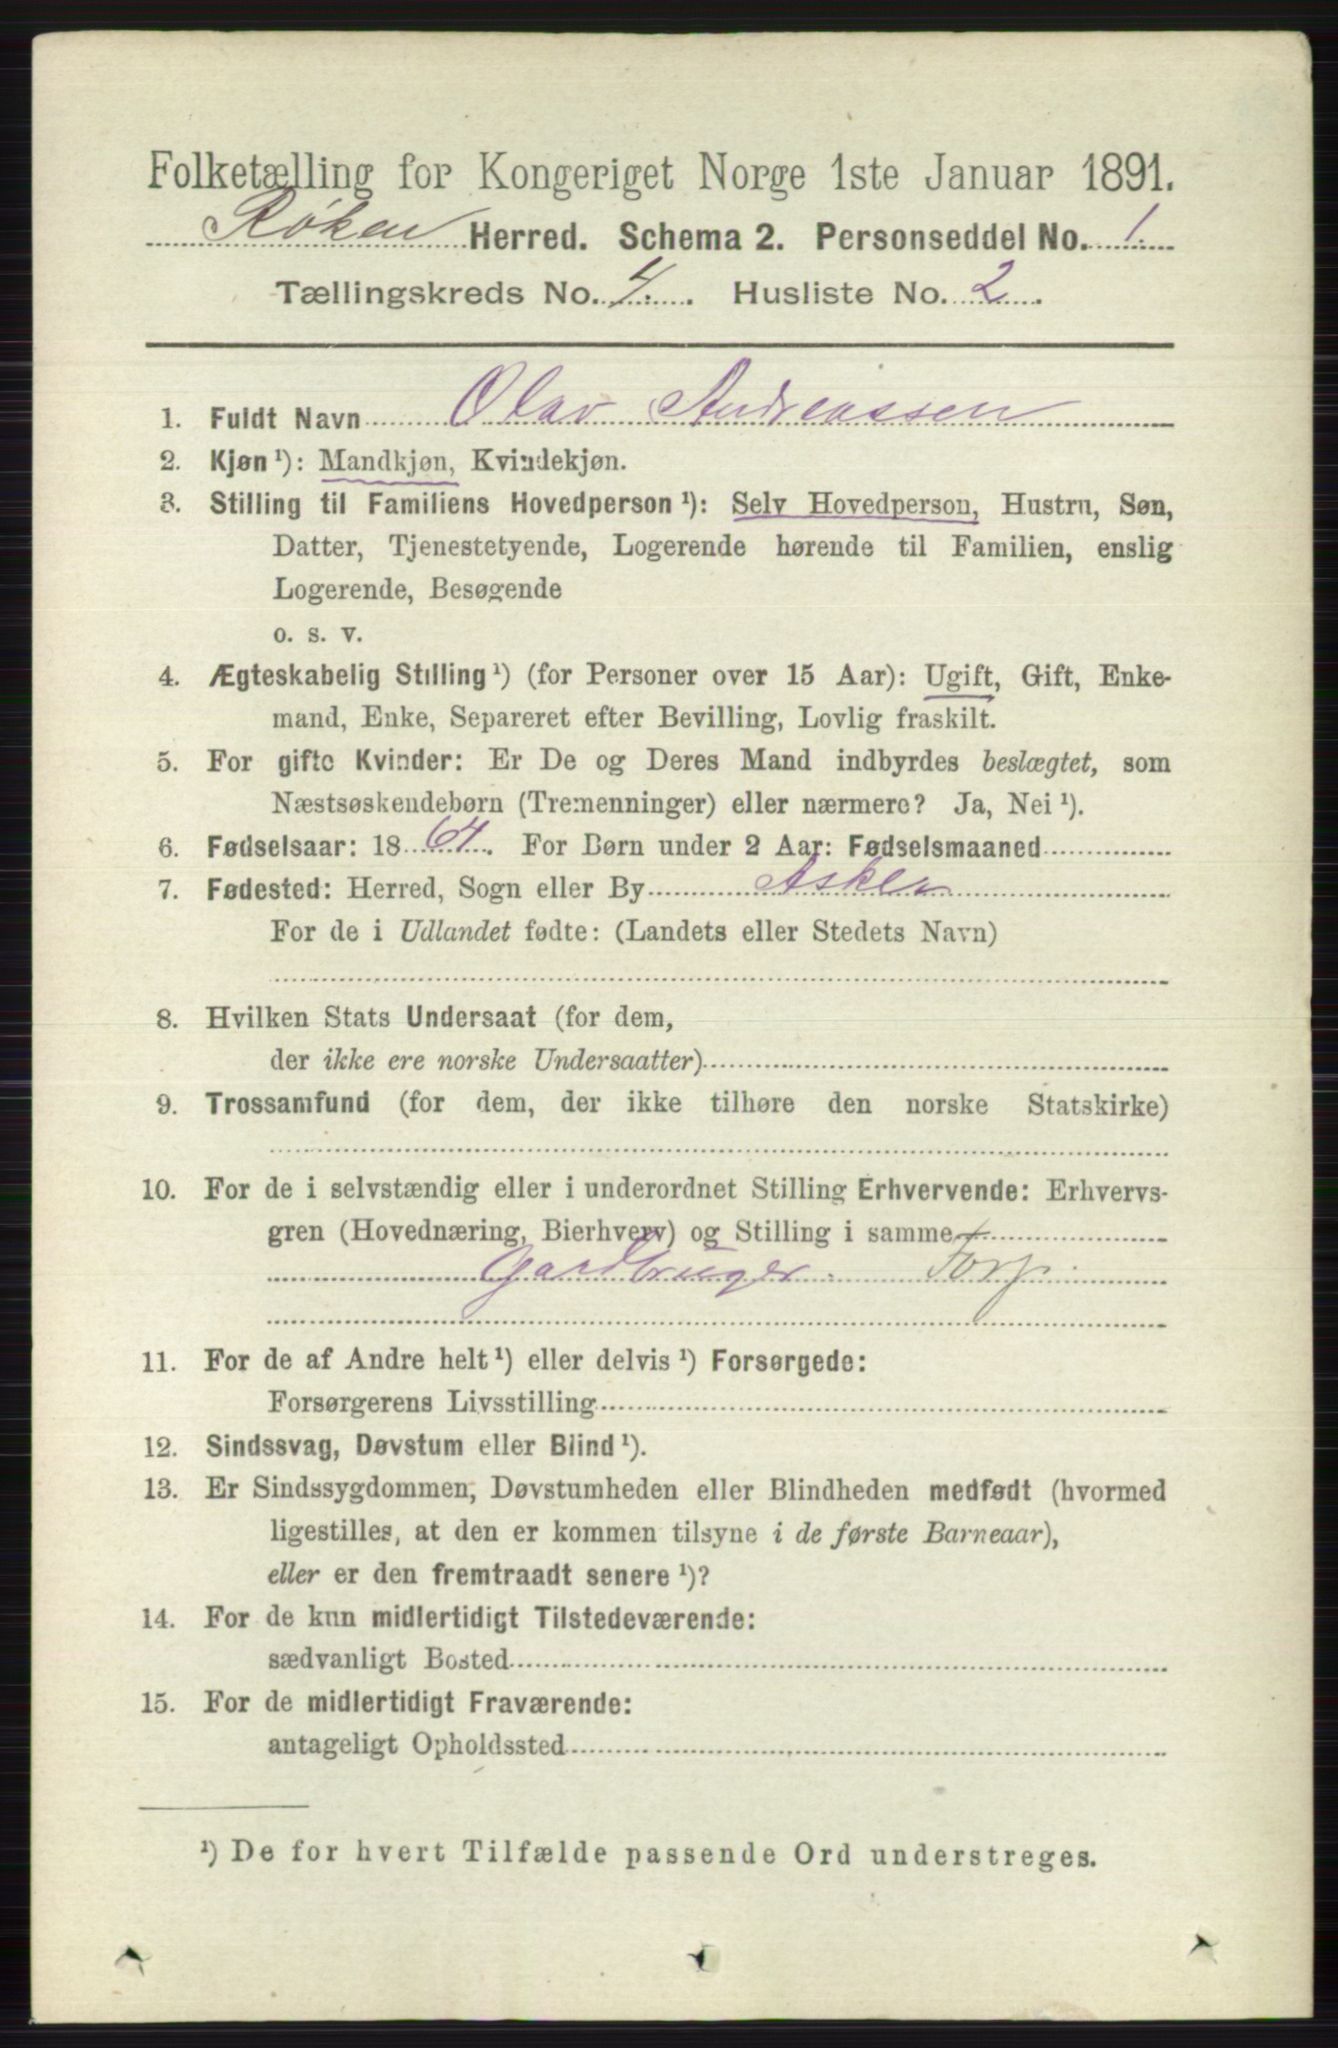 Folketælling for Kongeriget Norge 1ste Januar 1891.
Røken Herred. Schema 2. Personseddel No. 1.
Tællingskreds No. 4. Husliste No. 2.
1. Fuldt Navn Olav Andreassen
2. Kjøn ¹): Mandkjøn, Kvindekjøn.
3. Stilling til Familiens Hovedperson ¹): Selv Hovedperson, Hustru, Søn,
Datter, Tjenestetyende, Logerende hørende til Familien, enslig
Logerende, Besøgende
o. s. v.
4. Ægteskabelig Stilling ¹) (for Personer over 15 Aar): Ugift, Gift, Enke-
mand, Enke, Separeret efter Bevilling, Lovlig fraskilt.
5. For gifte Kvinder: Er De og Deres Mand indbyrdes beslægtet, som
Næstsøskendebørn (Tremenninger) eller nærmere? Ja, Nei ¹).
6. Fødselsaar: 1864. For Børn under 2 Aar: Fødselsmaaned
7. Fødested: Herred, Sogn eller By Asker
For de i Udlandet fødte: (Landets eller Stedets Navn)
8. Hvilken Stats Undersaat (for dem,
der ikke ere norske Undersaatter)
9. Trossamfund (for dem, der ikke tilhøre den norske Statskirke)
10. For de i selvstændig eller i underordnet Stilling Erhvervende: Erhvervs-
gren (Hovednæring, Bierhverv) og Stilling i samme
Gardbruger. Torp
11. For de af Andre helt ¹) eller delvis ¹) Forsørgede:
Forsørgerens Livsstilling
12. Sindssvag, Døvstum eller Blind ¹).
13. Er Sindssygdommen, Døvstumheden eller Blindheden medfødt (hvormed
ligestilles, at den er kommen tilsyne i de første Barneaar),
eller er den fremtraadt senere ¹)?
14. For de kun midlertidigt Tilstedeværende:
sædvanligt Bosted
15. For de midlertidigt Fraværende:
antageligt Opholdssted
¹) De for hvert Tilfælde passende Ord understreges.